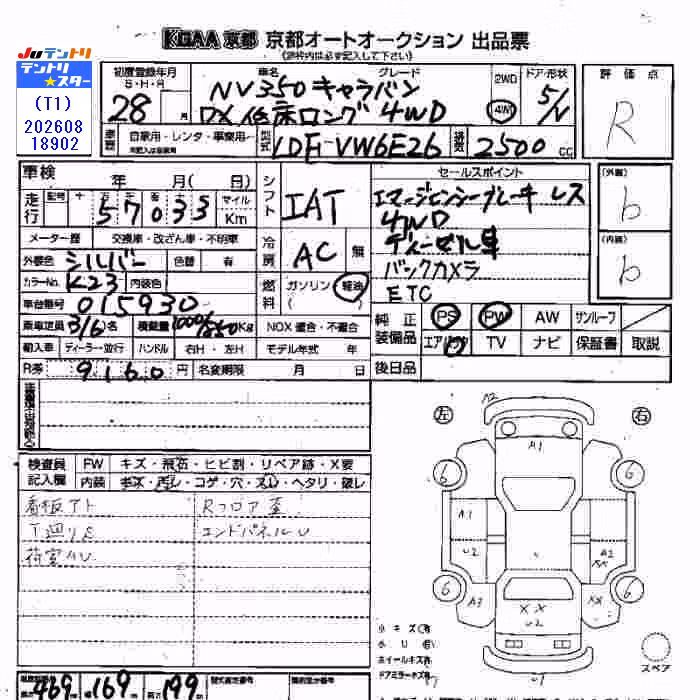 KCAA 京都 京都オートオークション 出品票
(太枠内は必ず記入して下さい)
JUテントリ
テントリ★スター
(T1)
202608
18902
初度登録年月
S・H・R
28 月
車名 グレード
NV350 キャラバン
DX 低床ロング 4WD
2WD
4WD
ドア・形状
5/V
評価点
R
車歴 自家用・レンタ・事業用
型式 LDF-VW6E26
排気 2500 CC
車検 年 月(日)
走行 57033 マイル Km
メーター歴 交換車・改ざん車・不明車
外装色 シルバー 色替 有
カラーNo. K23 内装色
車台番号 015930
乗車定員 3/6名 積載量 1000/850Kg NOX 適合・不適合
輸入車 ディーラー・並行 ハンドル 右H・左H モデル年式 年
R券 9160円 名変期限 月 日
シフト IAT
冷房 AC 無
燃料 ガソリン 軽油
セールスポイント
エマージェンシーブレーキ レス
4WD
ディーゼル車
バックカメラ
ETC
(外装)
b
(内装)
b
純正装備品 PS PW AW サンルーフ
エアバック TV ナビ 保証書 取説
後日品
検査員記入欄 FW キズ・飛石・ヒビ割・リペア跡・X要
内装 キズ・汚レ・コゲ・穴・スレ・ヘタリ・破レ
看板アト Rフロア歪
下廻りS エンドパネルU
荷室AU
左 右
A2
A1
6 6
A1
U2 A2
XX
6 6
A3 XX
XX
U2
U1
キズ(有
ホイールキズ(有
ドアミラーキズ(有
スペア
469 169 199